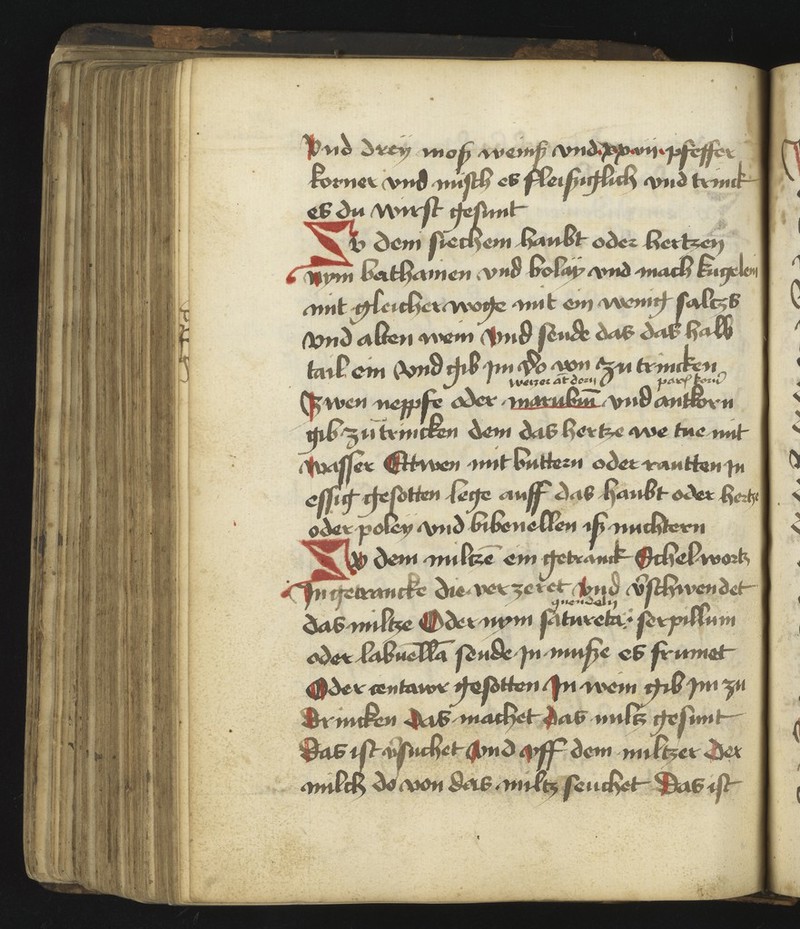 Vnd dreÿ moß weinß vnd xxvii pfeffer
korner vnd misch es fleißiglich vnd trinck
es du wirst gesunt
Zv dem siechem haubt oder hertzen
nym bathanien vnd bolaÿ vnd mach kugelein
mit gleicher woge mit ein wenig saltzs
vnd alten wein Vnd seude das das halb
tail ein Vnd gib jm do von zu trincken
weizer ät dorn
Zwen neppfe oder marubiū vnd antkorn
gib zu trincken dem das hertze we tue mit
wasser Ettwen mit buttern oder rautten jn
essig gesotten lege auff das haubt oder hertze
oder poleÿ vnd bibenellen iß nuchtern
Zv dem miltzē ein getranck Schelwortz
In getrancke die verzeret Vnd v̄schwendet
quendeln
das miltze Oder nym satureia serpillum
oder labuellā seude jn muße es frumet
Oder centawr gesotten In wein gib jm zu
Drincken Das machet das miltz gesunt
Das ist v̄suchet Vnd vff dem miltzer Der
milch do von das miltz seuchet Das ist